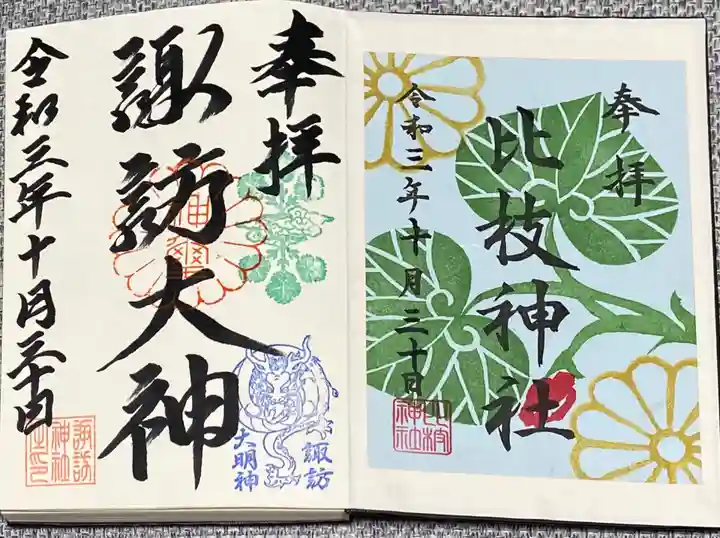 奉拝
比枝神社
令和三年十月三十日
比枝神社
奉拝
諏訪大神
令和三年十月三十日
諏訪
大明神
諏訪
神社